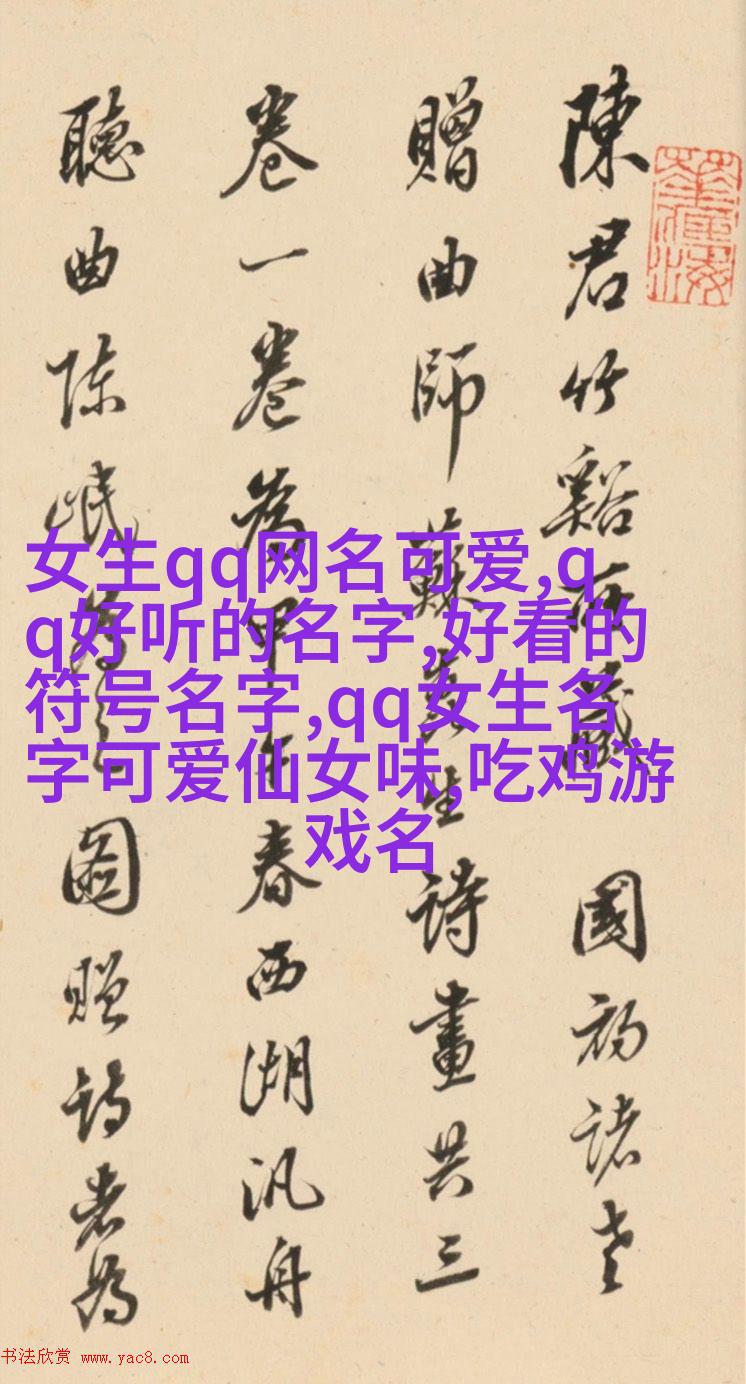 陳君竹谿所藏 國初諸老
贈曲師蘇崑生詩畫共三
卷一卷為甲午春西湖汎舟
聽曲陈岷為之圖贈詩者為
女生qq网名可爱,q
q好听的名字,好看的
符号名字,qq女生名
字可爱仙女味,吃鸡游
戏名
书法欣赏 www.yac8.com